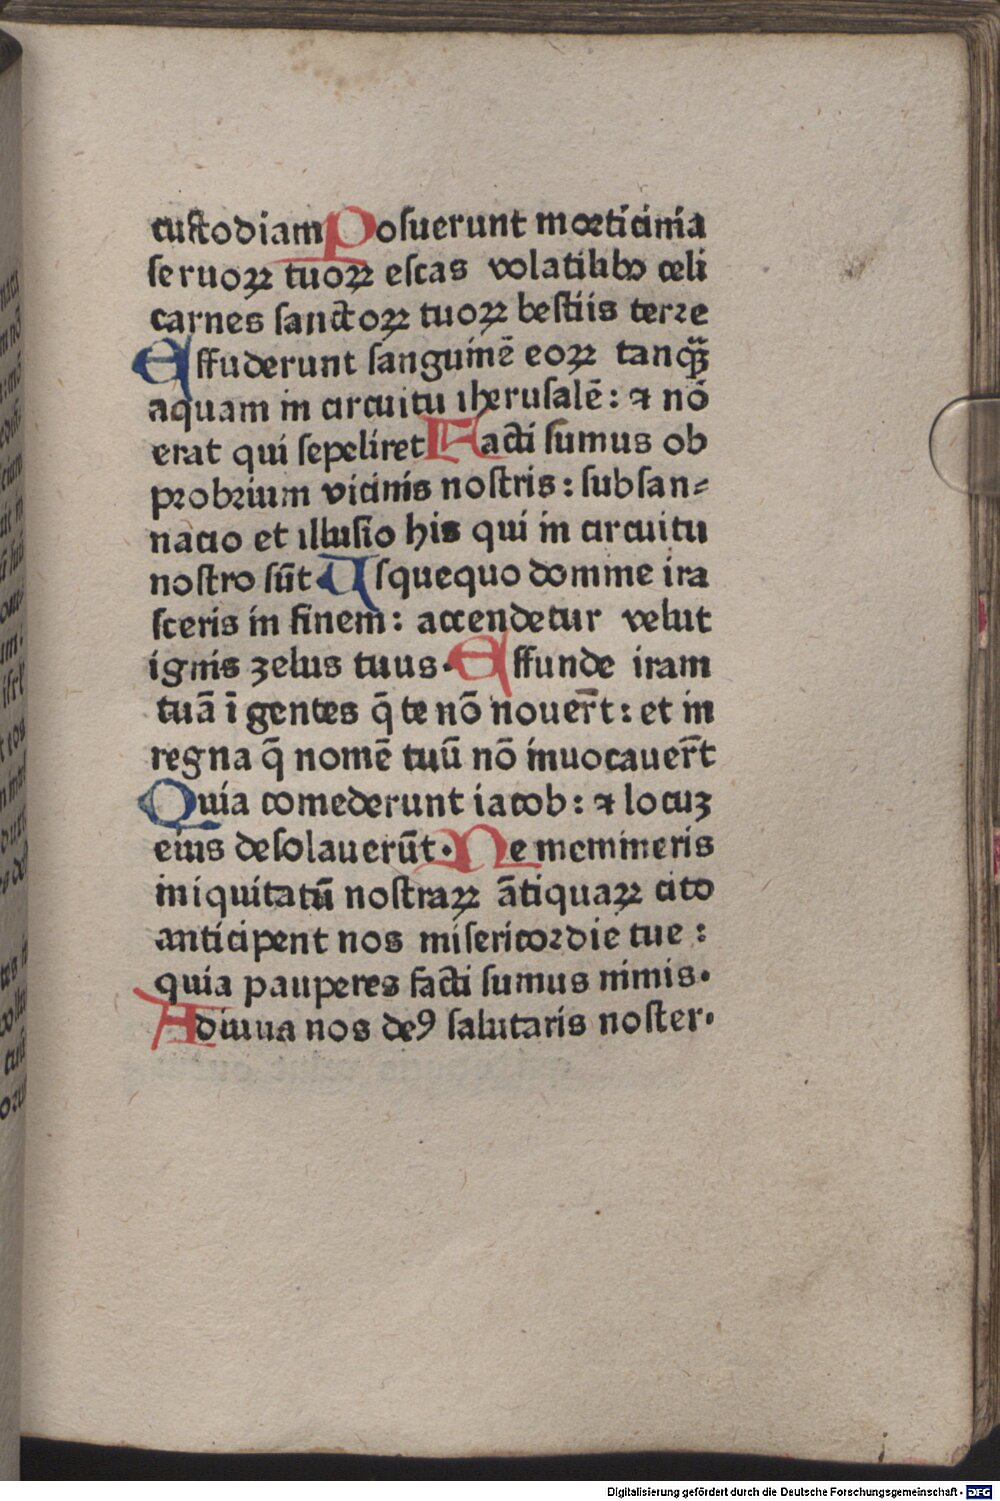 custodiam Posuerunt morticinia
seruoꝝ tuoꝝ escas volatilibꝰ celi
carnes sanctoꝝ tuoꝝ bestiis terre
Effuderunt sanguinē eoꝝ tanqᷓꝫ
aquam in circuitu iherusalē: ⁊ nō
erat qui sepeliret Facti sumus ob
probrium vicinis nostris: subsan⸗
nacio et illusio his qui in circuitu
nostro sūt Usquequo domine ira
sceris in finem: accendetur velut
ignis zelus tuus. Effunde iram
tuā ī gentes q̄ te nō nouer̄t: et in
regna q̄ nomē tuū nō inuocauer̄t
Quia comederunt iacob: ⁊ locuꝫ
eius desolauerūt. Ne memineris
iniquitatū nostraꝝ ātiquaꝝ cito
anticipent nos misericordie tue:
quia pauperes facti sumus nimis.
Adiuua nos deꝰ salutaris noster.
Digitalisierung gefördert durch die Deutsche Forschungsgemeinschaft - DFG